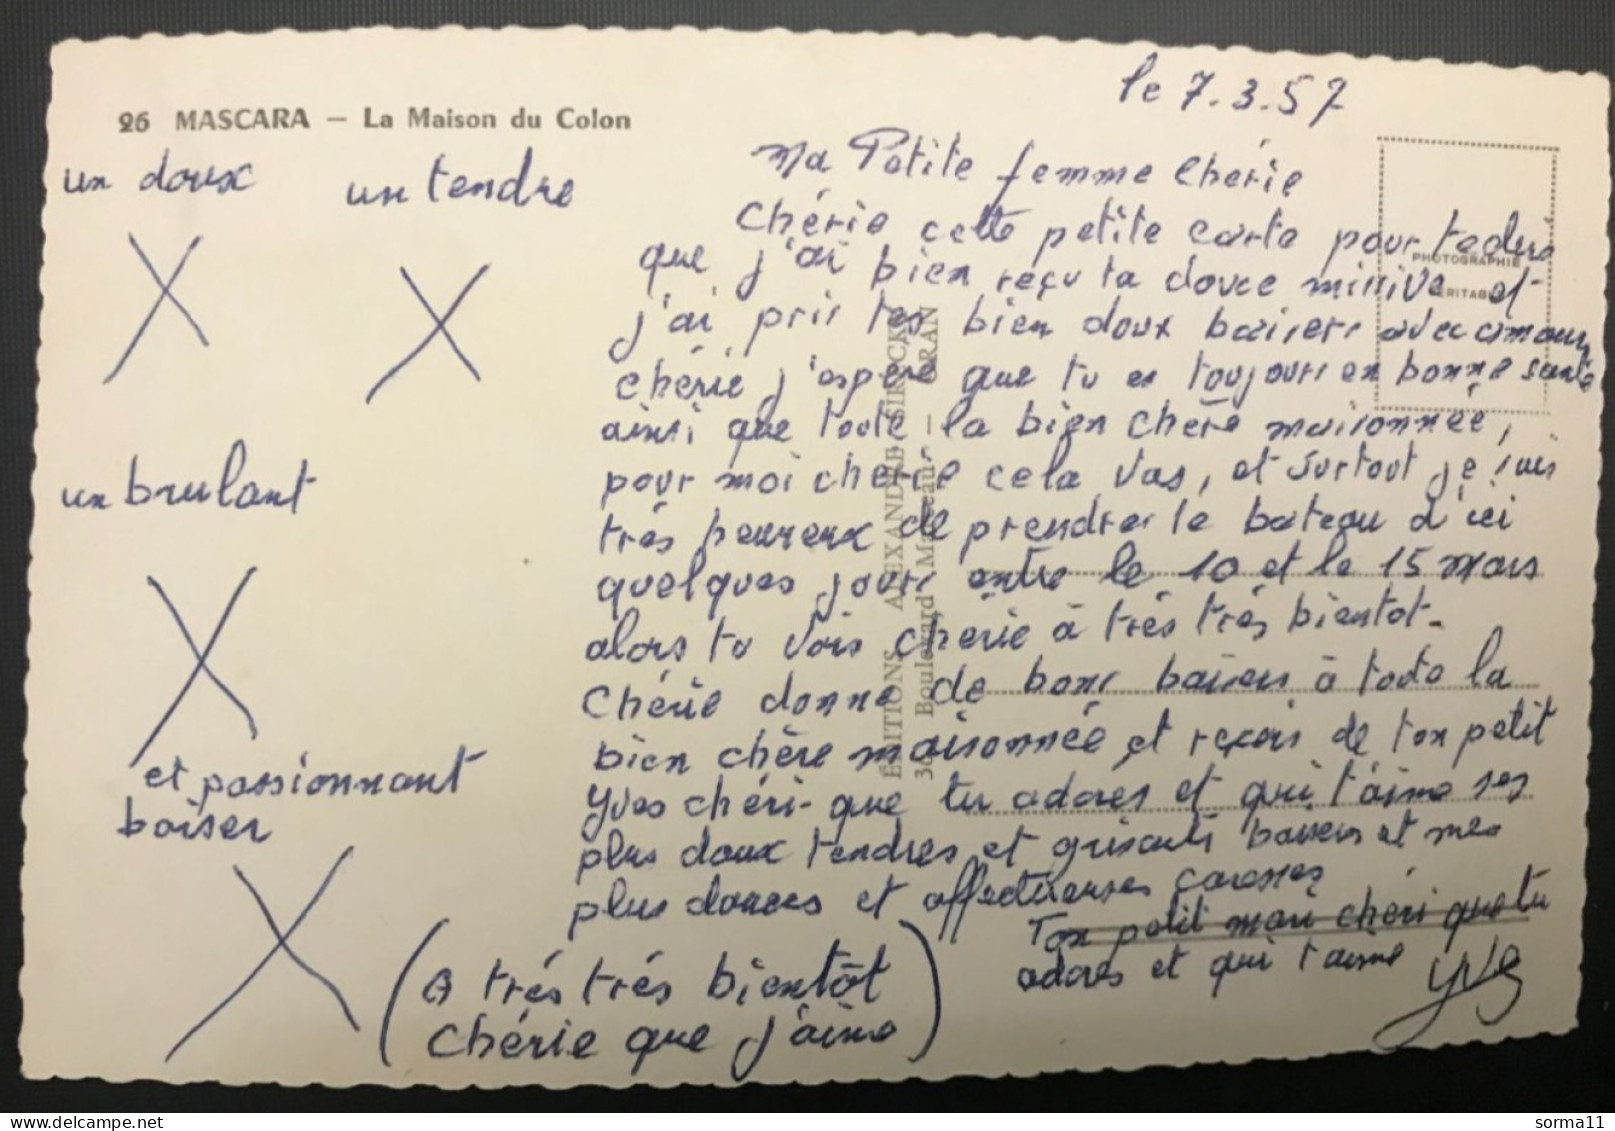 26 MASCARA – La Maison du Colon
le 7.3.57
un doux
un tendre
un brulant
et passionnant
baiser
Ma Petite femme Chérie
Chérie cette petite carte pour te dire
que j'ai bien reçu ta douce missive et
j'ai pris tes bien doux baisers avec amour
chérie j'espère que tu es toujours en bonne santé
ainsi que toute la bien chère maisonnée,
pour moi cherie cela vas, et surtout je suis
trés heureux de prendre le bateau d'ici
quelques jours entre le 10 et le 15 mars
alors tu vois chérie à trés trés bientot.
Chérie donne de bons baisers à toute la
bien chère maisonnée et reçois de ton petit
Yves chéri que tu adores et qui t'aime ses
plus doux tendres et grisants baisers et mes
plus douces et affectueuses caresses
Ton petit mari chéri que tu
adores et qui t'aime
Yves
(A trés trés bientôt
chérie que j'aime)
PHOTOGRAPHIE
VÉRITABLE
ÉDITIONS ALEXANDRE
Boulevard Marceau – ORAN
sorma11